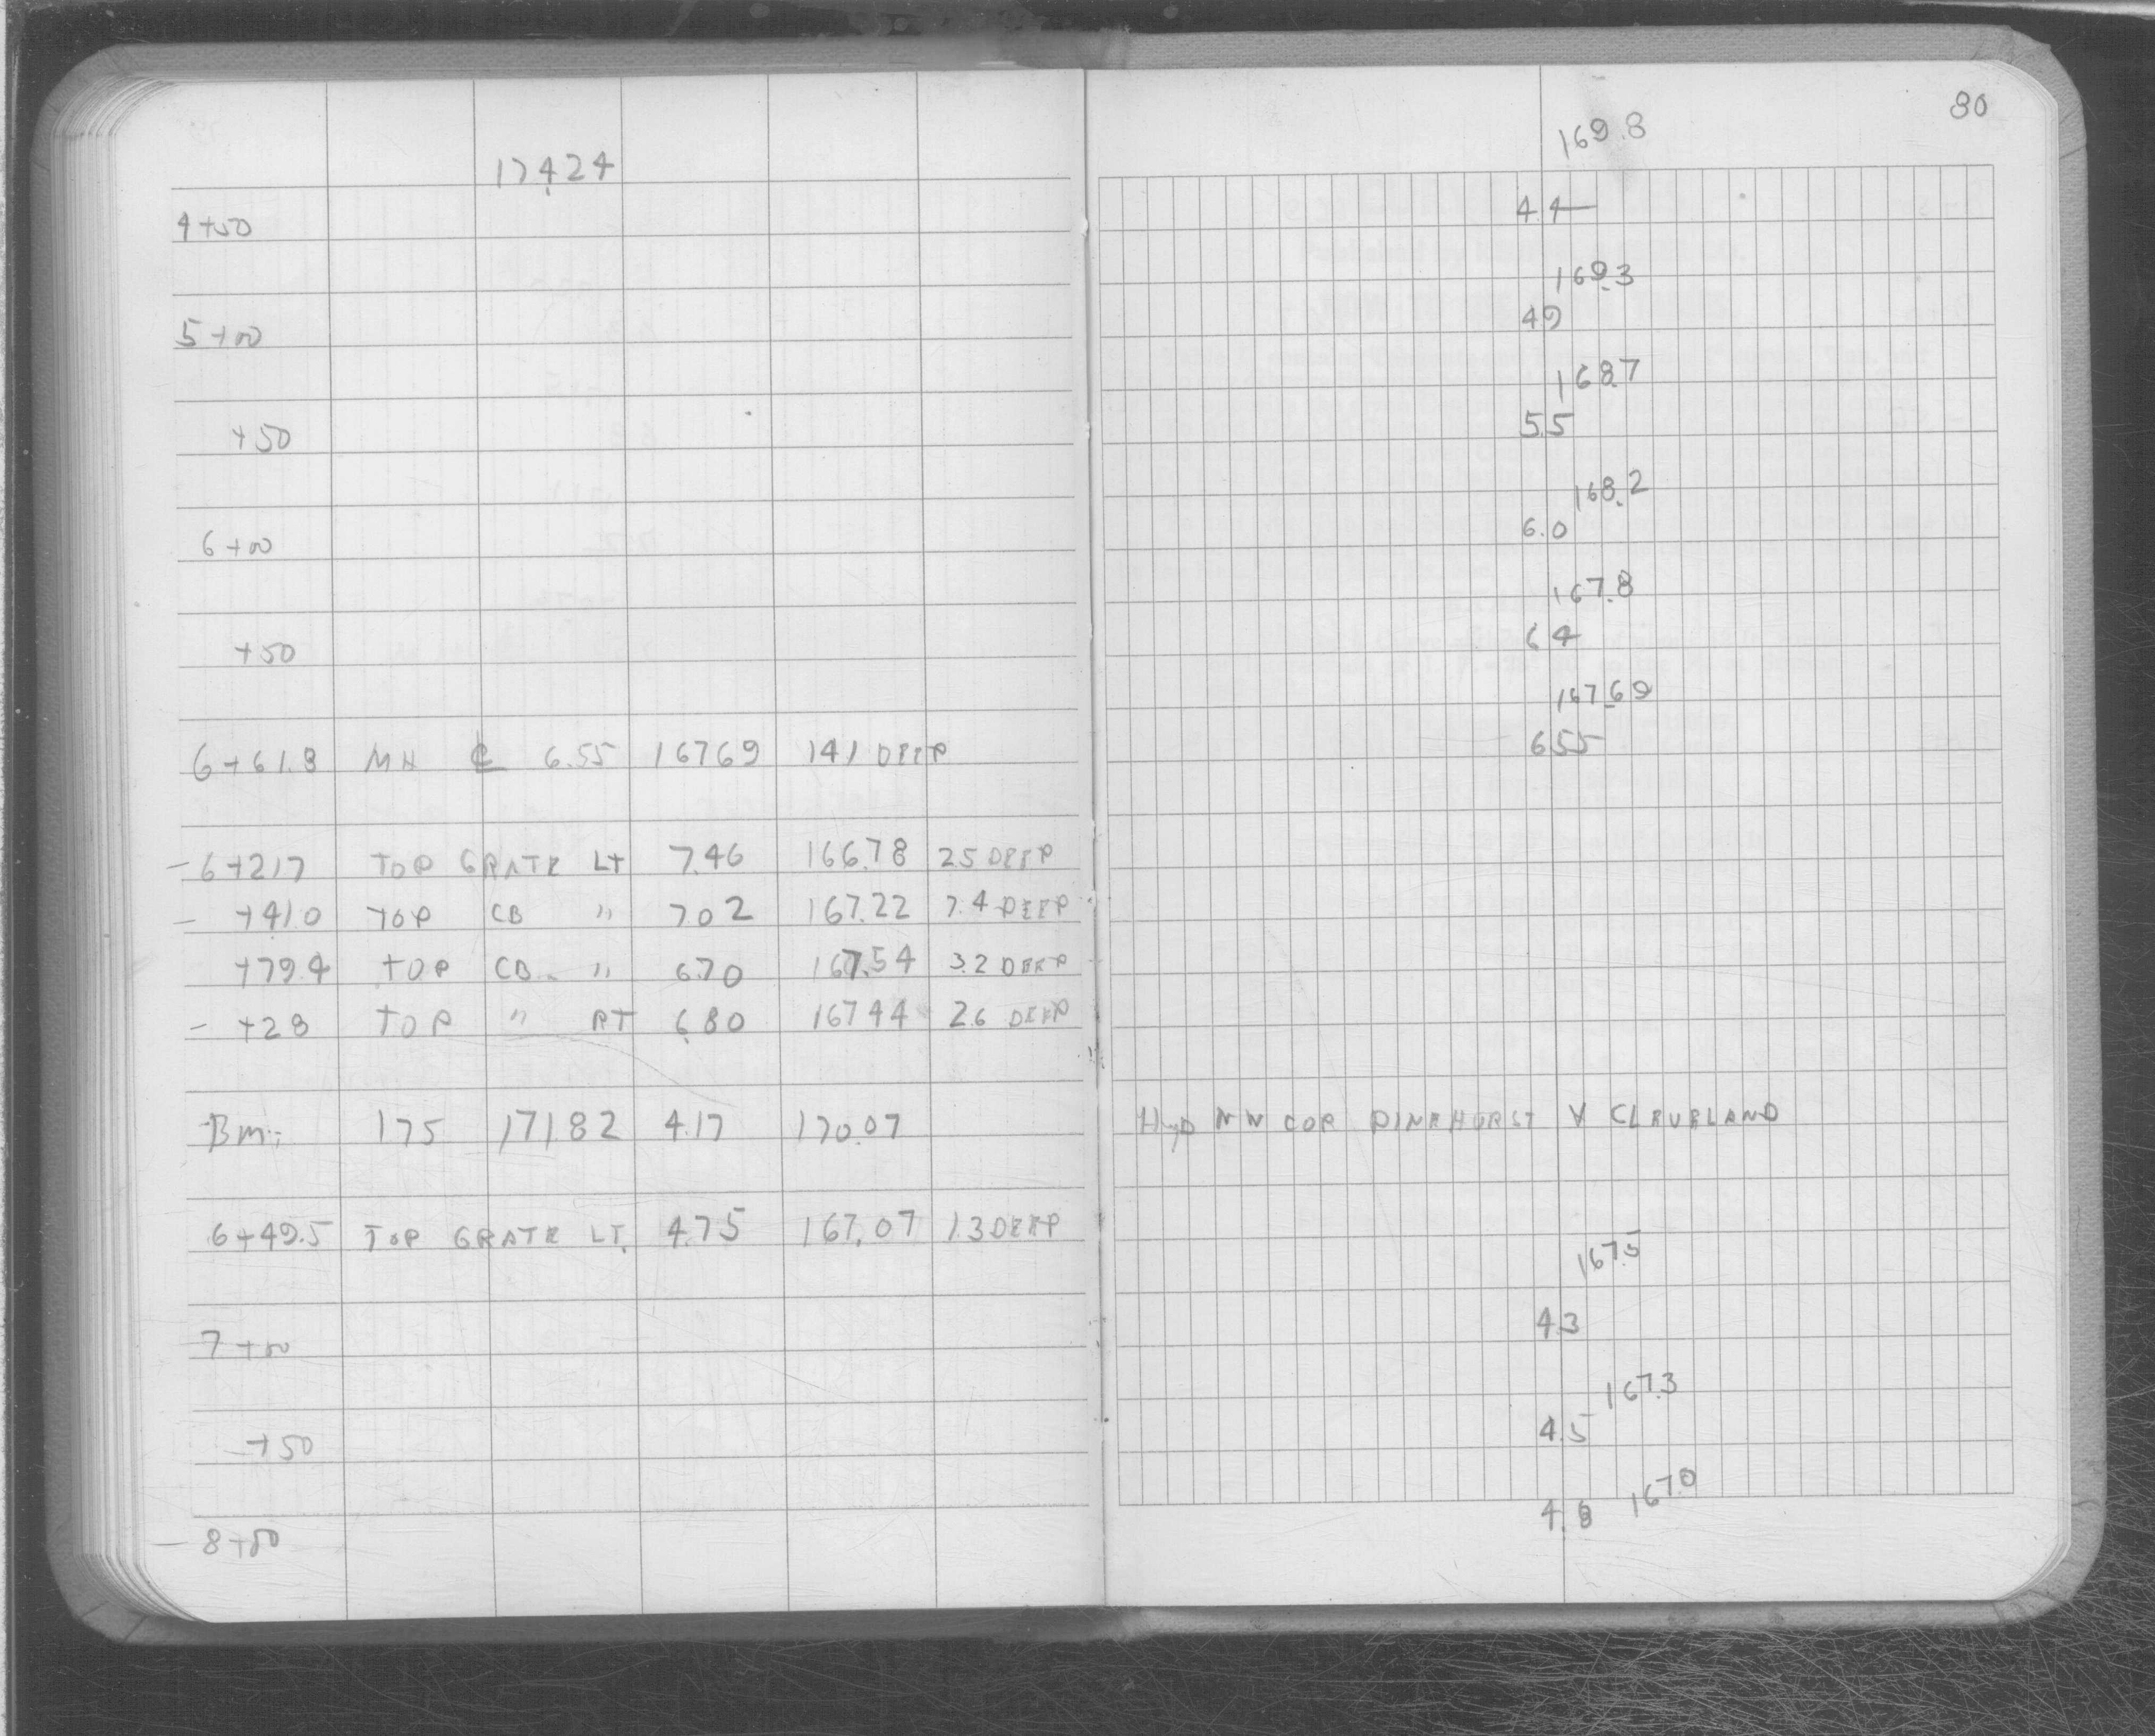 80
174.24
169.8
4+50 4.4
169.3
5+00 4.9
168.7
+50 5.5
168.2
6+00 6.0
167.8
+50 6.4
167.69
6+61.8 MH ℄ 6.55 167.69 14.1 DEEP 6.55
6+21.7 TOP GRATE LT 7.46 166.78 2.5 DEEP
+41.0 TOP CB " 7.02 167.22 7.4 DEEP
+79.4 TOP CB " 6.70 167.54 3.2 DEEP
+28 TOP " RT 6.80 167.44 2.6 DEEP
BM 1.75 171.82 4.17 170.07 Hyd NW COR PINEHURST & CLEVELAND
6+49.5 TOP GRATE LT. 4.75 167.07 1.3 DEEP
167.5
7+00 4.3
167.3
+50 4.5
167.0
8+00 4.8